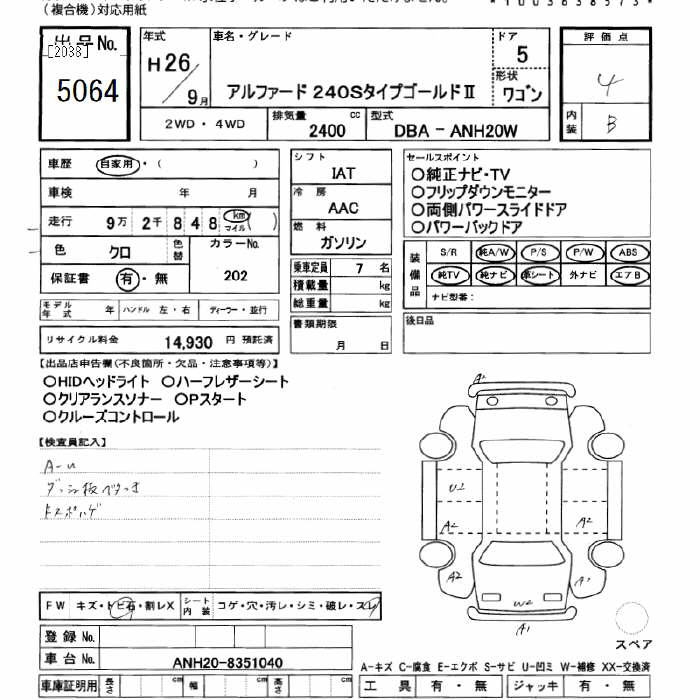 (複合機)対応用紙
*1003638573*
出品No.
[2038]
5064
年式
H26/9月
車名・グレード
アルファード 240SタイプゴールドⅡ
ドア
5
形状
ワゴン
評価点
4
内装
B
2WD・4WD
排気量
2400
cc
型式
DBA - ANH20W
車歴
自家用・( )
車検
年 月
走行
9万 2千 8 4 8 km マイル ( )
色
クロ
色替
カラーNo.
202
保証書
有・無
モデル年式
年
ハンドル 左・右
ディーラー・並行
リサイクル料金
14,930 円 預託済
シフト
IAT
冷房
AAC
燃料
ガソリン
乗車定員
7 名
積載量
kg
総重量
kg
書類期限
月 日
セールスポイント
○純正ナビ・TV
○フリップダウンモニター
○両側パワースライドドア
○パワーバックドア
装備品
S/R 純A/W P/S P/W ABS
純TV 純ナビ 革シート 外ナビ エアB
ナビ型番:
後日品
【出品店申告欄(不良箇所・欠品・注意事項等)】
○HIDヘッドライト ○ハーフレザーシート
○クリアランスソナー ○Pスタート
○クルーズコントロール
【検査員記入】
A-u
FW
キズ・トビ石・割レX
シート内装
コゲ・穴・汚レ・シミ・破レ・スレ
登録No.
車台No.
ANH20-8351040
車庫証明用
長さ
cm
幅
cm
高さ
cm
A2
U2
A2
A2
A2
A1
W2
A1
スペア
A-キズ C-腐食 E-エクボ S-サビ U-凹ミ W-補修 XX-交換済
工具
有・無
ジャッキ
有・無